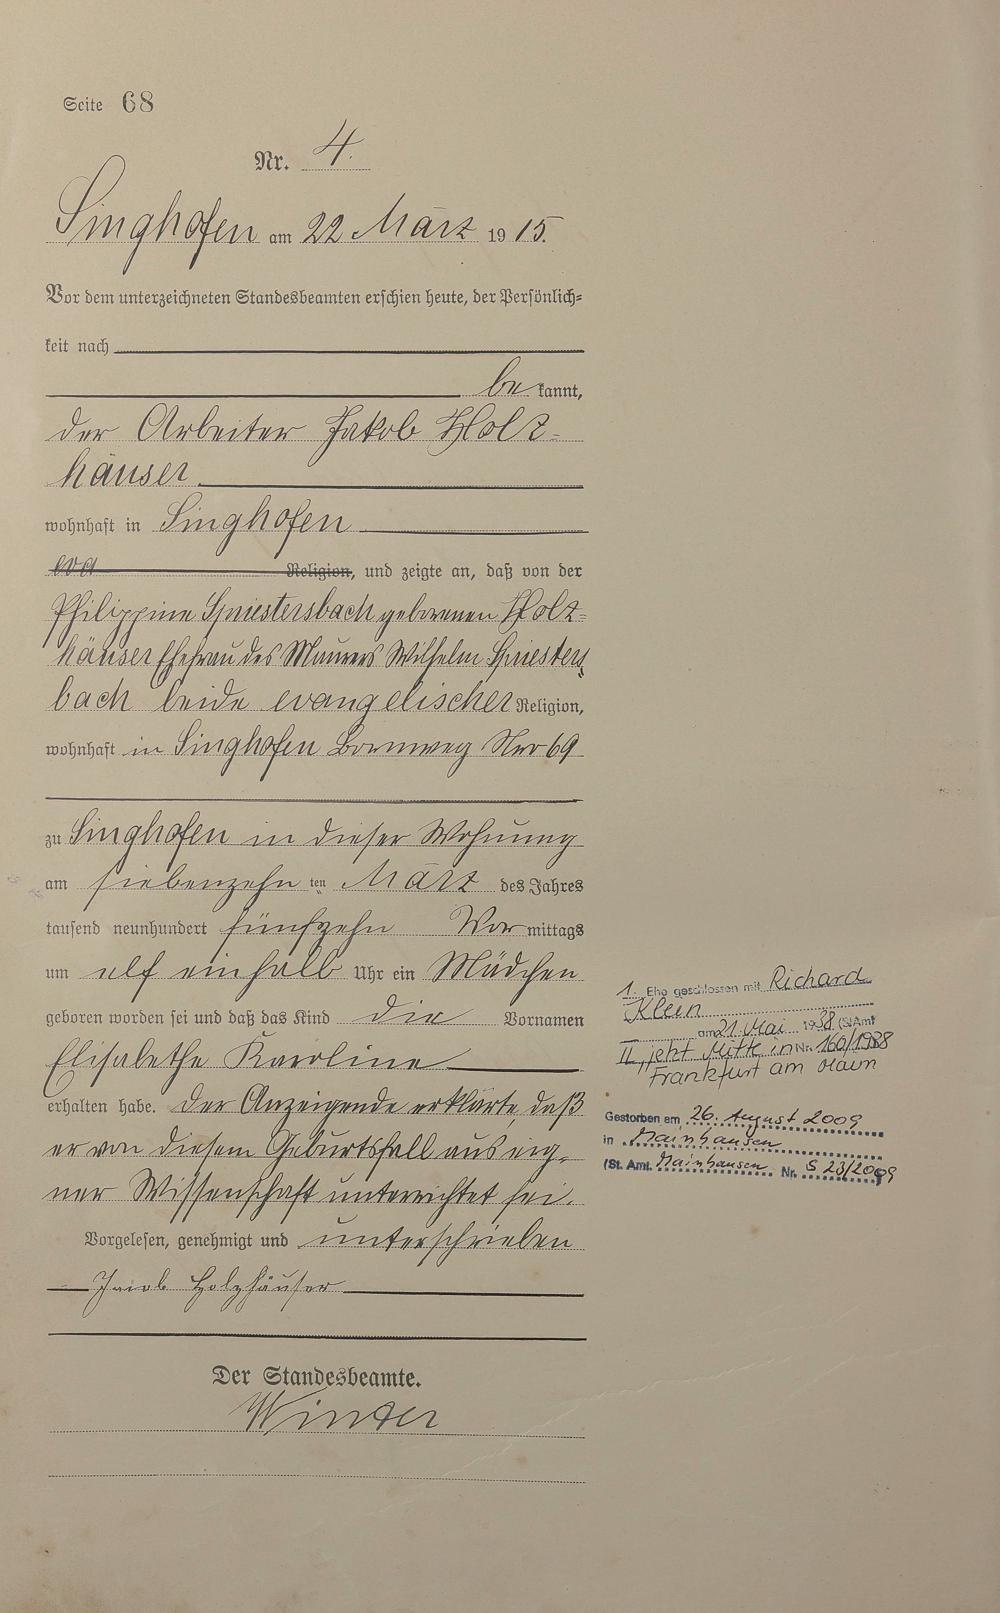 Seite 68
Nr. 4.
Singhofen am 22 März 1915.
Vor dem unterzeichneten Standesbeamten erschien heute, der Persönlich-
keit nach
bekannt,
der Arbeiter Jakob Holz-
häuser
wohnhaft in Singhofen
eva Religion, und zeigte an, daß von der
Philippine Spriestersbach geborenen Holz-
häuser Ehefrau des Maurers Wilhelm Spriesters,
bach beide evangelischer Religion,
wohnhaft in Singhofen Bornweg Nro 69
zu Singhofen in dieser Wohnung
am siebenzehn ten März des Jahres
tausend neunhundert fünfzehn Vormittags
um elf einhalb Uhr ein Mädchen
geboren worden sei und daß das Kind die Vornamen
Elisabethe Karoline
erhalten habe. Der Anzeigende erklärte, daß
er von diesem Geburtsfall aus eig-
ner Wissenschaft unterrichtet sei.
Vorgelesen, genehmigt und unterschrieben
Jacob Holzhäuser
Der Standesbeamte.
Winter
1. Ehe geschlossen mit Richard
Klein
am 21 Mai 1938 (St.Amt
II, jetzt Mitte in Nr. 160/1938
Frankfurt am Main
Gestorben am 26. August 2009
in Mainhausen
(St. Amt. Mainhausen Nr. S 23/2009